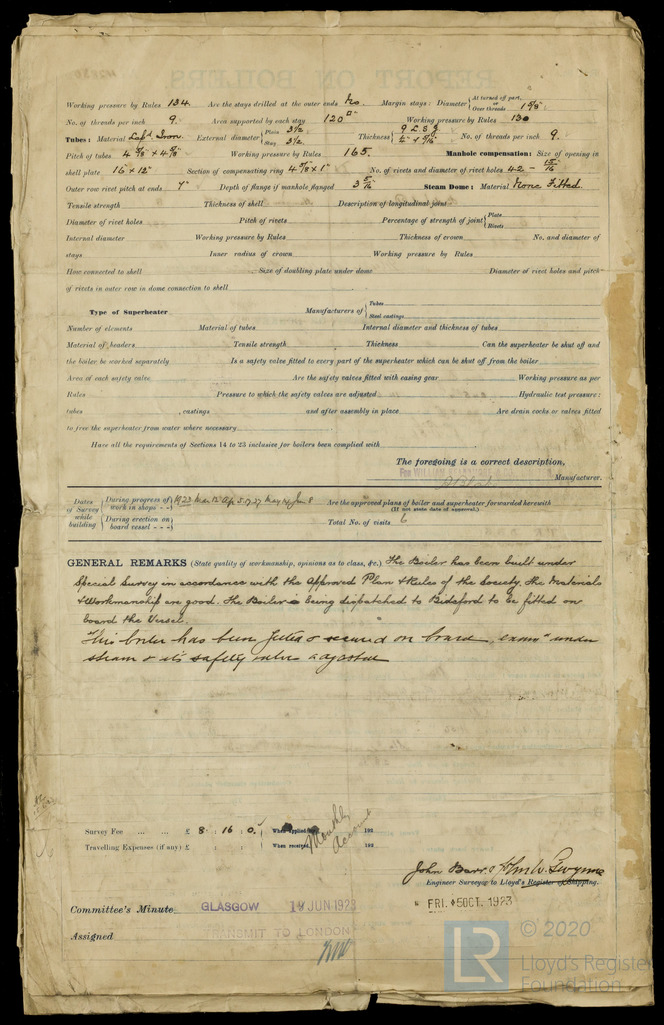 Working pressure by Rules 134 Are the stays drilled at the outer ends No. Margin stays: Diameter { At turned off part, or Over threads 1 5/8"
No. of threads per inch 9. Area supported by each stay 120 □" Working pressure by Rules 130
Tubes: Material Lapd Iron. External diameter { Plain 3 1/2. Stay 3 1/2. Thickness { 9 L.S.G. 1/4" & 5/16" No. of threads per inch 9.
Pitch of tubes 4 5/8 x 4 5/8" Working pressure by Rules 165. Manhole compensation: Size of opening in
shell plate 16 x 12" Section of compensating ring 4 5/8 x 1" No. of rivets and diameter of rivet holes 42 - 15/16
Outer row rivet pitch at ends 7" Depth of flange if manhole flanged 3 5/16 Steam Dome: Material None Fitted.
Tensile strength Thickness of shell Description of longitudinal joint
Diameter of rivet holes Pitch of rivets Percentage of strength of joint { Plate Rivets
Internal diameter Working pressure by Rules Thickness of crown No. and diameter of
stays Inner radius of crown Working pressure by Rules
How connected to shell Size of doubling plate under dome Diameter of rivet holes and pitch
of rivets in outer row in dome connection to shell
Type of Superheater Manufacturers of { Tubes Steel castings
Number of elements Material of tubes Internal diameter and thickness of tubes
Material of headers Tensile strength Thickness Can the superheater be shut off and
the boiler be worked separately Is a safety valve fitted to every part of the superheater which can be shut off from the boiler
Area of each safety valve Are the safety valves fitted with easing gear Working pressure as per
Rules Pressure to which the safety valves are adjusted Hydraulic test pressure:
tubes , castings and after assembly in place Are drain cocks or valves fitted
to free the superheater from water where necessary
Have all the requirements of Sections 14 to 23 inclusive for boilers been complied with
The foregoing is a correct description,
Manufacturer.
Dates of Survey while building { During progress of work in shops - - } 1923 Mar 12 Ap 5.17.27 May 14 Jun 8 Are the approved plans of boiler and superheater forwarded herewith (If not state date of approval.)
{ During erection on board vessel - - - } Total No. of visits 6
GENERAL REMARKS (State quality of workmanship, opinions as to class, &c.) The Boiler has been built under
Special Survey in accordance with the Approved Plan & Rules of the Society, the Materials
& Workmanship are good. The Boiler is being dispatched to Bideford to be fitted on
board the Vessel.
This boiler has been fitted & secured on board, examd under
steam & its safety valves adjusted
Survey Fee ... ... £ 8 : 16 : 0. When applied for, 192
Monthly Account
Travelling Expenses (if any) £ : : When received, 192
John Barr. &
Engineer Surveyor to Lloyd's Register of Shipping.
Committee's Minute GLASGOW JUN 1923
FRI. 5 OCT. 1923
Assigned TRANSMIT TO LONDON
LR
© 2020
Lloyd's Register
Foundation